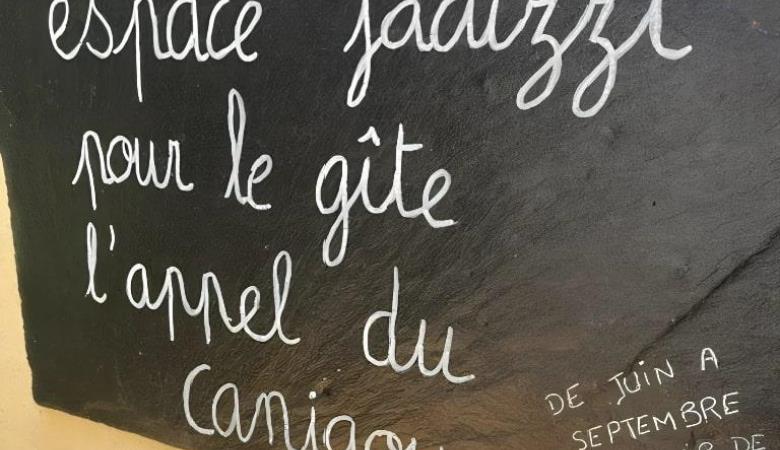 espace jacuzzi
pour le gîte
l'appel du
Canigou
DE JUIN A
SEPTEMBRE
DE